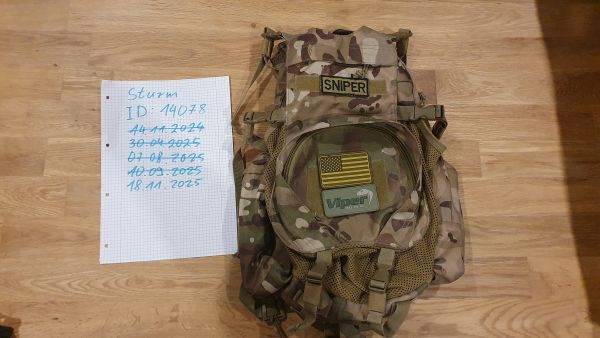 Sturm
ID: 14078
14.11.2024
30.04.2025
07.08.2025
10.09.2025
18.11.2025
SNIPER
Viper